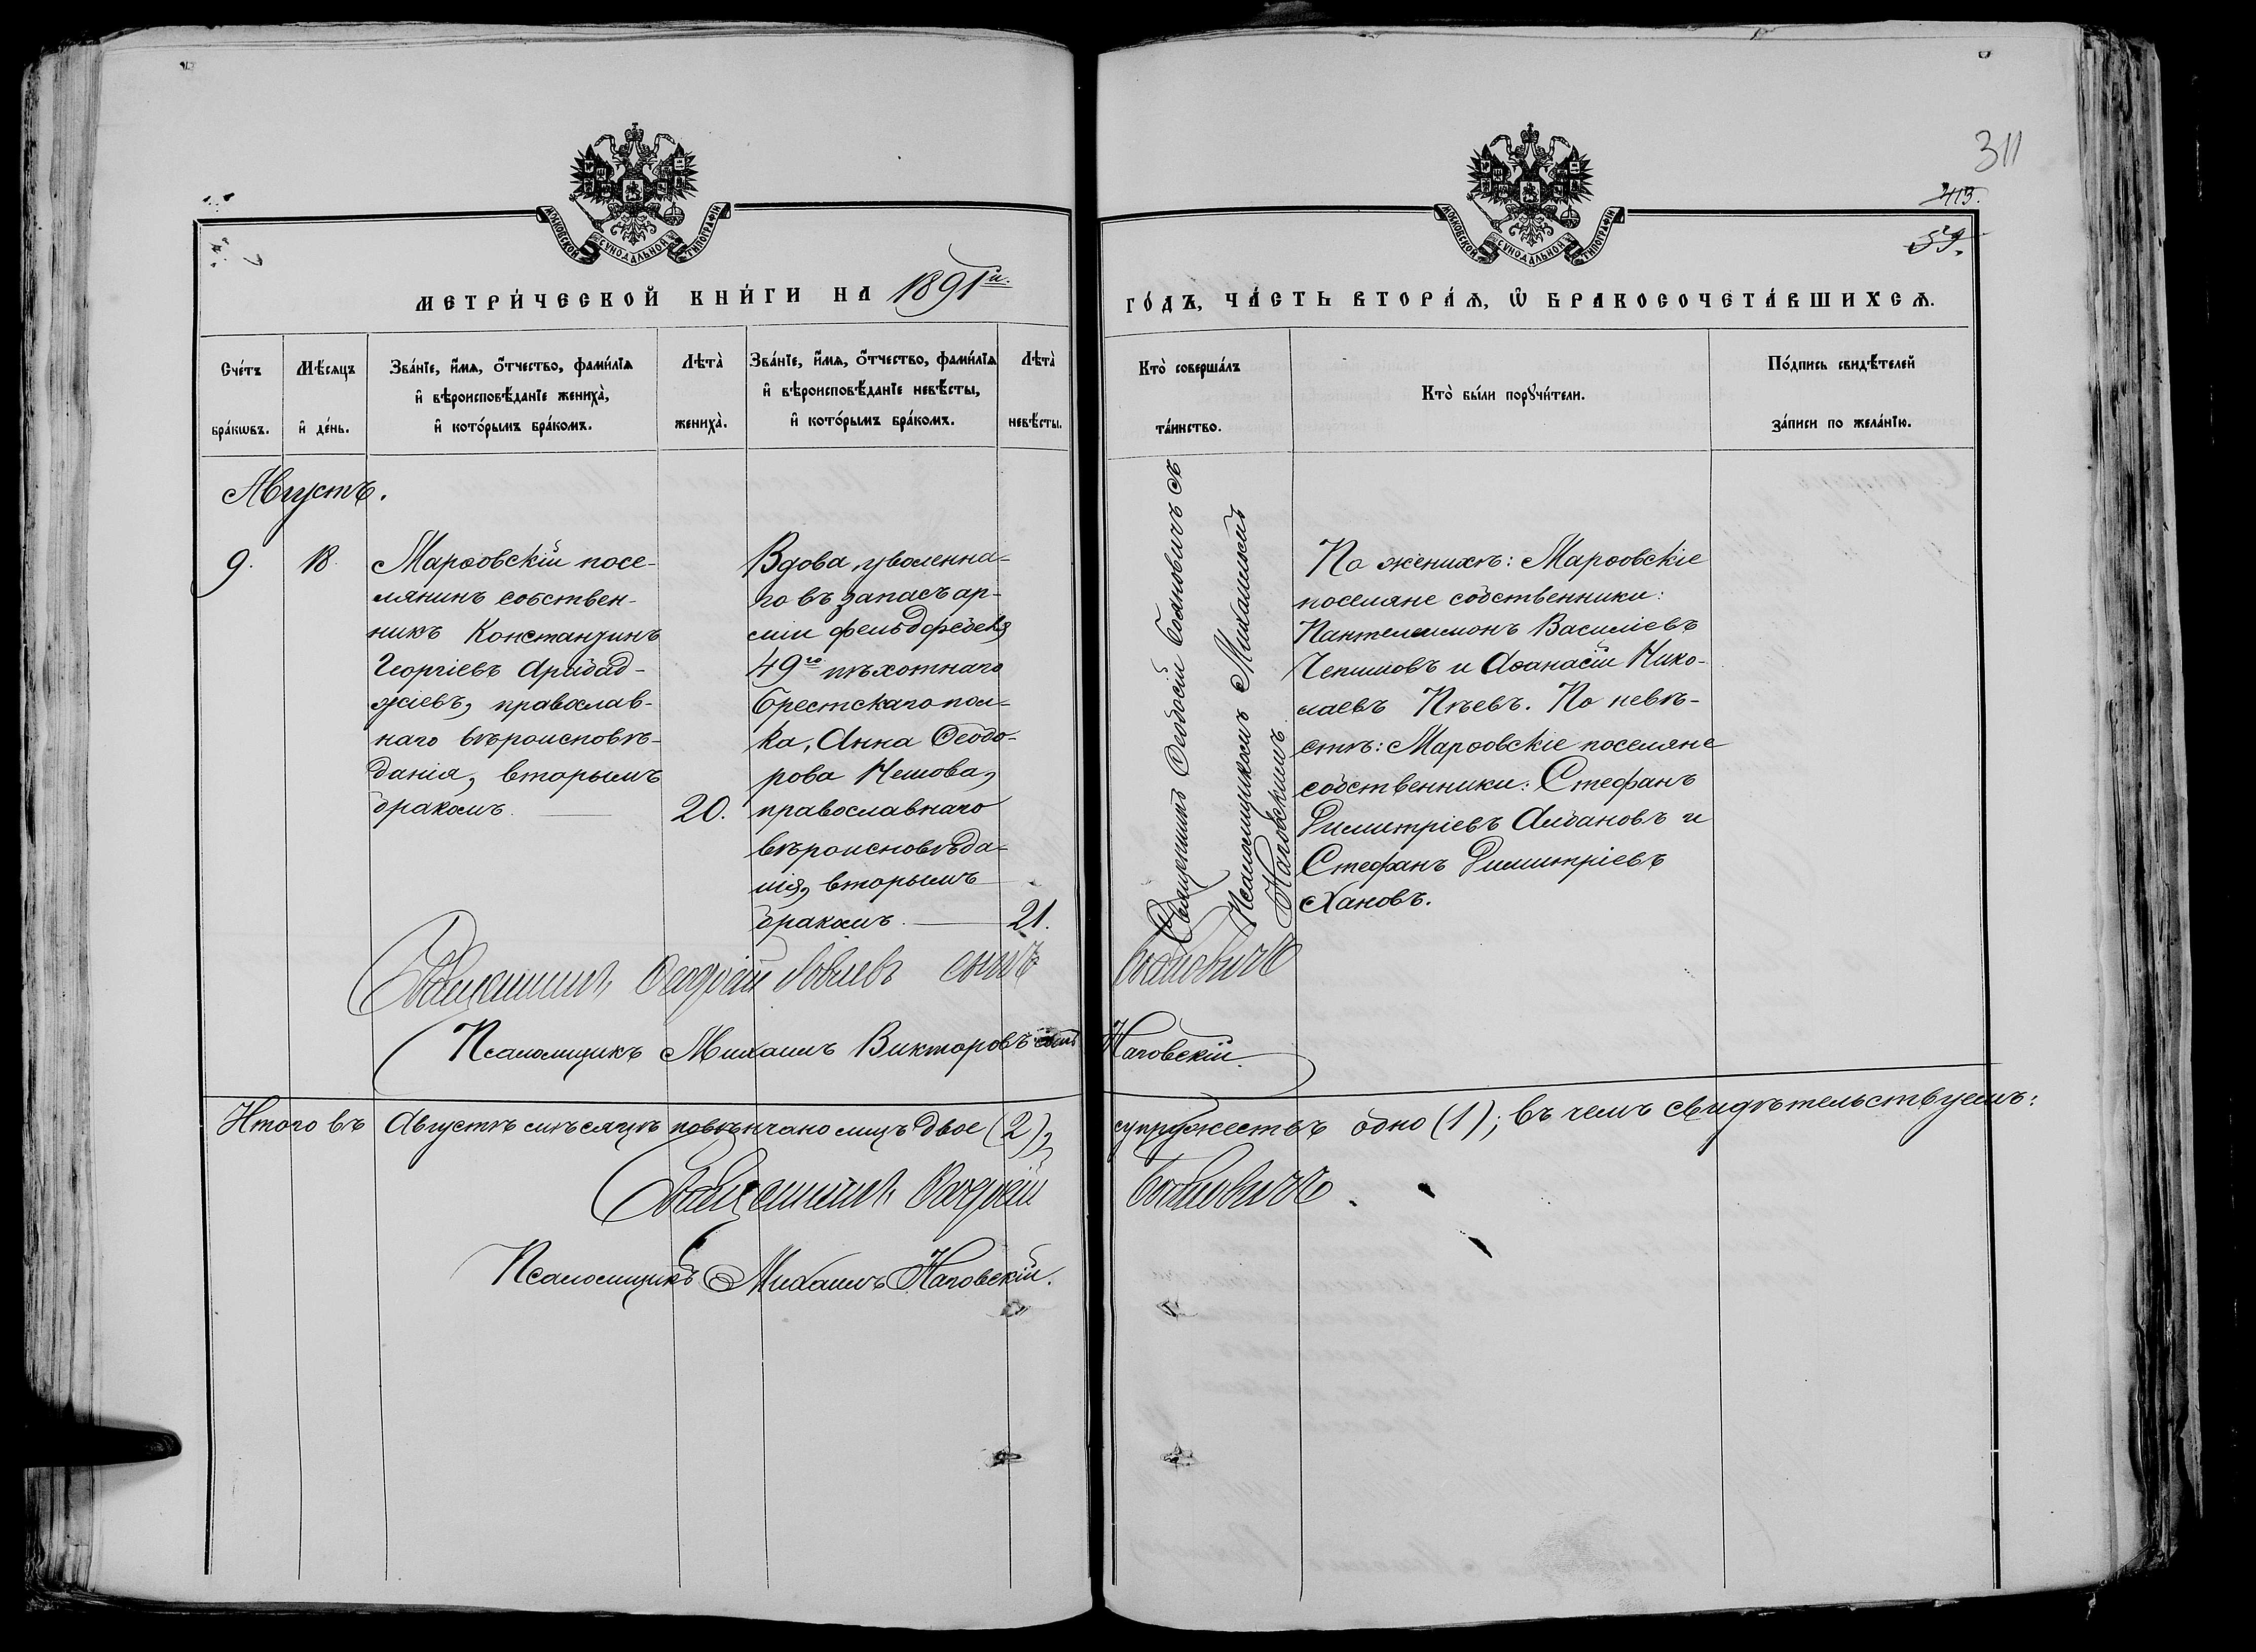 311
413.
59.
МОСКОВСКОЙ СУНОДАЛЬНОЙ ТИПОГРАФІИ
МОСКОВСКОЙ СУНОДАЛЬНОЙ ТИПОГРАФІИ
МЕТРИ́ЧЕСКОЙ КНИ́ГИ НА 1891й.
ГО́ДЪ, ЧА́СТЬ ВТОРА́Ѧ, Ѽ БРАКОСОЧЕТА́ВШИХСѦ.
Сче́тъ бра́кѡвъ.
Мѣ́сѧцъ и҆ де́нь.
Зва́нїе, и҆́мѧ, ѻ҆́тчество, фами́лїѧ
и҆ вѣроисповѣ́данїе жениха̀,
и҆ кото́рымъ бра́комъ.
Лѣта̀ жениха̀.
Зва́нїе, и҆́мѧ, ѻ҆́тчество, фами́лїѧ
и҆ вѣроисповѣ́данїе невѣ́сты,
и҆ кото́рымъ бра́комъ.
Лѣта̀ невѣ́сты.
Кто̀ соверша́лъ
та́инство.
Кто̀ бы́ли порꙋчи́тели.
По́дпись свидѣ́телей
за́писи по жела́нїю.
Августъ.
9.
18.
Марѳовскій посе-
лянинъ собствен-
никъ Константинъ
Георгіевъ Арабад-
жіевъ, православ-
наго вѣроисповѣ-
данія, вторымъ
бракомъ.
20.
Вдова, уволенна-
го въ запасъ ар-
міи фельдфебеля
49го пѣхотнаго
Брестскаго пол-
ка, Анна Ѳеодо-
рова Нешова,
православнаго
вѣроисповѣда-
нія, вторымъ
бракомъ.
21.
Священникъ Ѳеодосій Бояновичъ съ
Псаломщикомъ Михаиломъ
Наговскимъ
По женихѣ: Марѳовскіе
поселяне собственники:
Пантелеимонъ Василіевъ
Чепишовъ и Аѳанасій Нико-
лаевъ Пѣевъ. По невѣ-
стѣ: Марѳовскіе поселяне
собственники: Стефанъ
Димитріевъ Албановъ и
Стефанъ Димитріевъ
Хановъ.
Священникъ Ѳеодосій сынъ Бояновичъ
Псаломщикъ Михаилъ Викторовъ сынъ Наговскій.
Итого въ Августѣ мѣсяцѣ повѣнчано лицъ двое (2), супружествъ одно (1); въ чемъ свидѣтельствуемъ:
Священникъ Ѳеодосій Бояновичъ.
Псаломщикъ Михаилъ Наговскій.